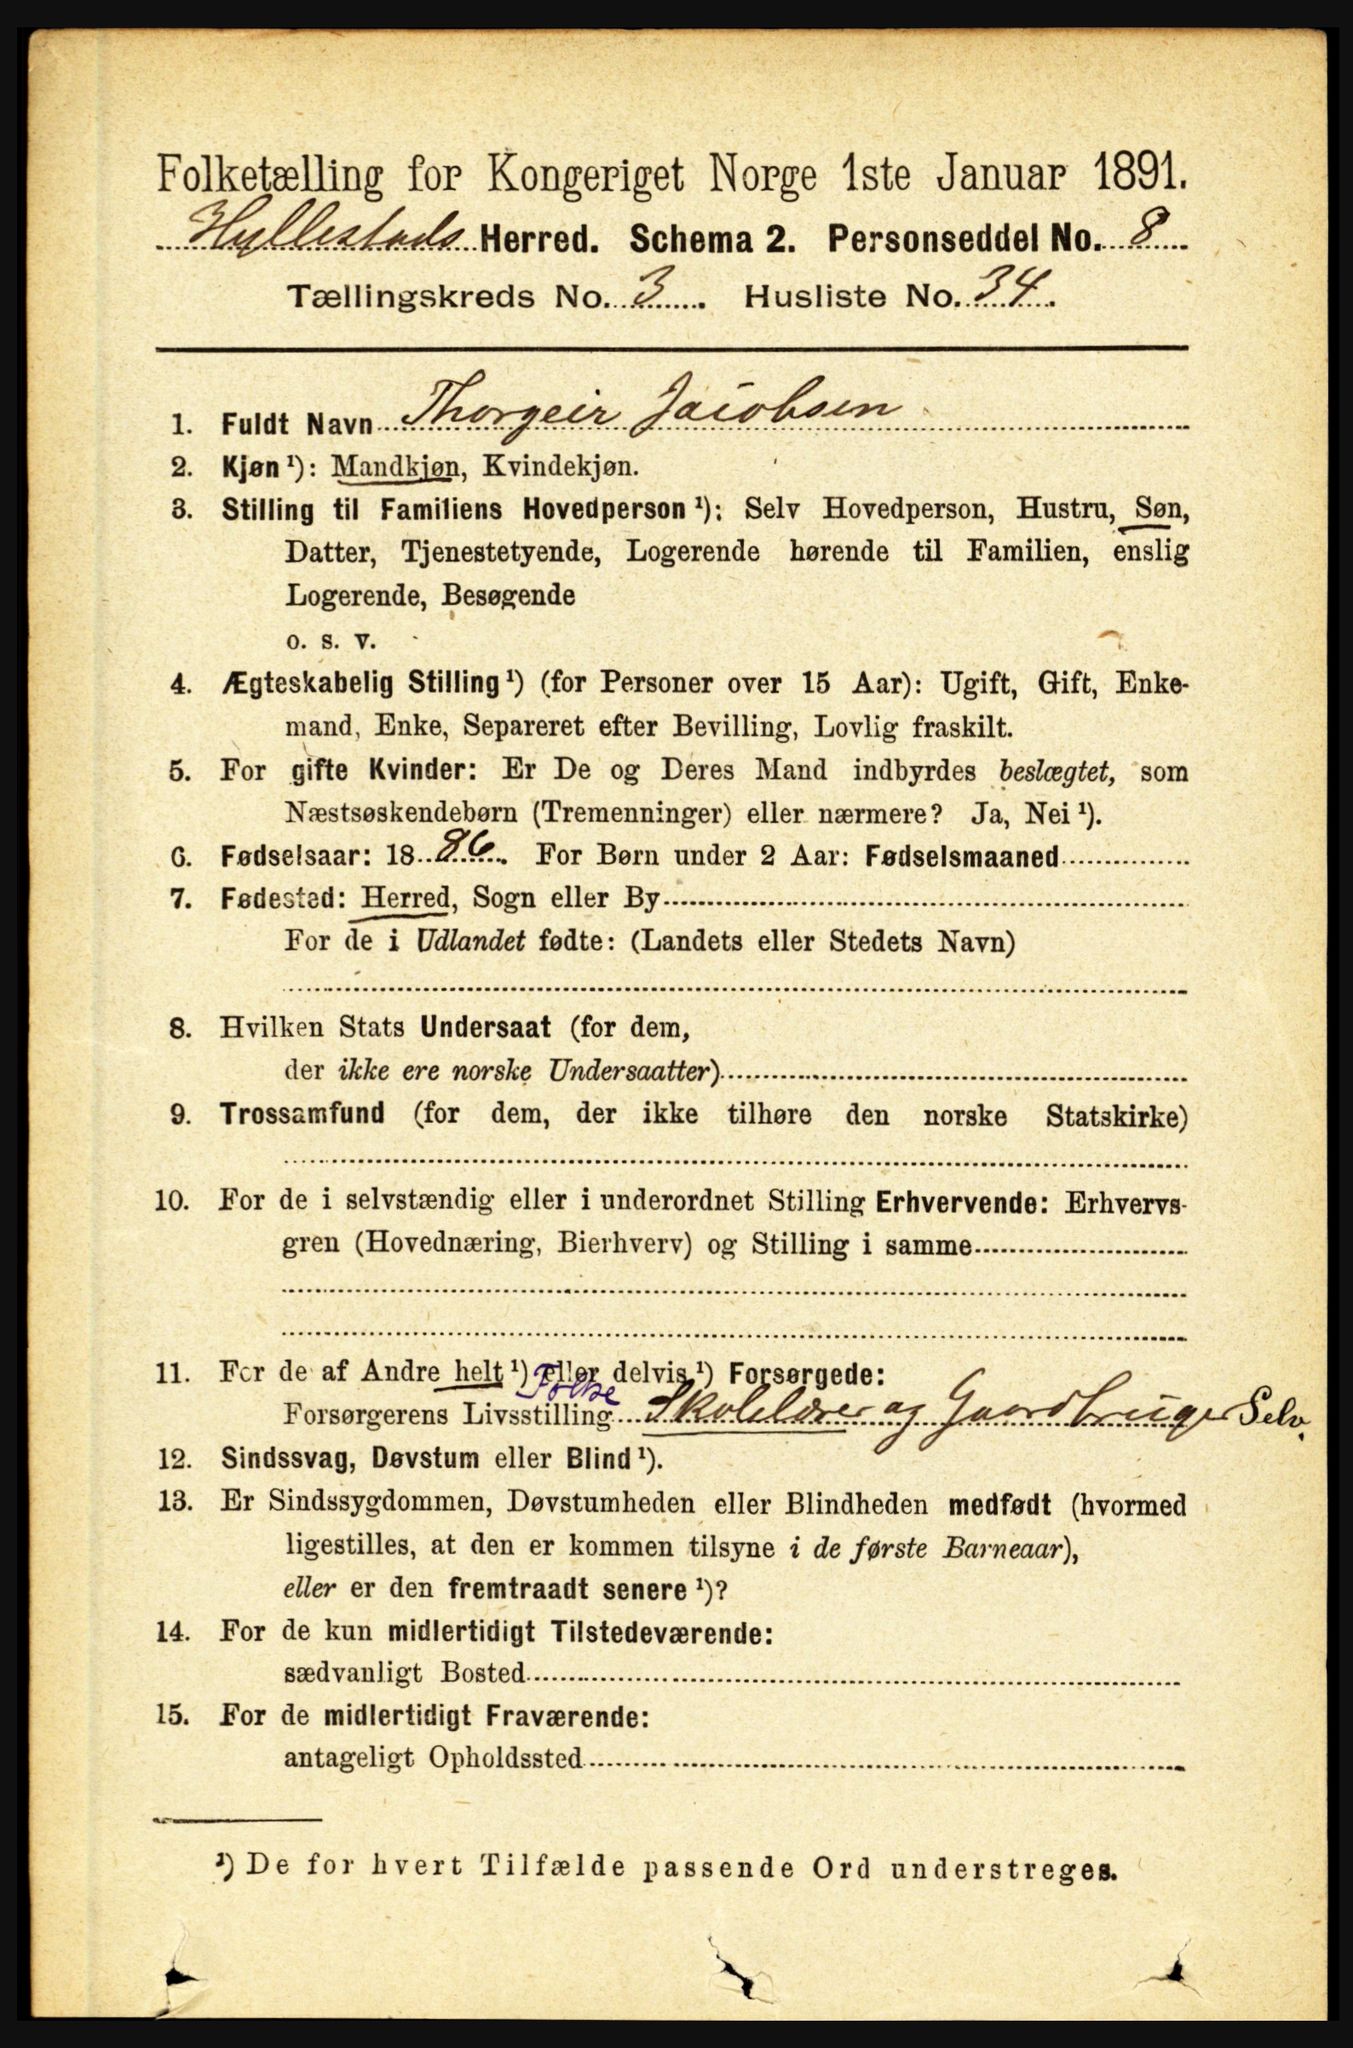 Folketælling for Kongeriget Norge 1ste Januar 1891.
Hyllestads Herred. Schema 2. Personseddel No. 8
Tællingskreds No. 3. Husliste No. 34.
1. Fuldt Navn Thorgeir Jacobsen
2. Kjøn ¹): Mandkjøn, Kvindekjøn.
3. Stilling til Familiens Hovedperson ¹): Selv Hovedperson, Hustru, Søn,
Datter, Tjenestetyende, Logerende hørende til Familien, enslig
Logerende, Besøgende
o. s. v.
4. Ægteskabelig Stilling ¹) (for Personer over 15 Aar): Ugift, Gift, Enke-
mand, Enke, Separeret efter Bevilling, Lovlig fraskilt.
5. For gifte Kvinder: Er De og Deres Mand indbyrdes beslægtet, som
Næstsøskendebørn (Tremenninger) eller nærmere? Ja, Nei ¹).
6. Fødselsaar: 1886. For Børn under 2 Aar: Fødselsmaaned
7. Fødested: Herred, Sogn eller By
For de i Udlandet fødte: (Landets eller Stedets Navn)
8. Hvilken Stats Undersaat (for dem,
der ikke ere norske Undersaatter)
9. Trossamfund (for dem, der ikke tilhøre den norske Statskirke)
10. For de i selvstændig eller i underordnet Stilling Erhvervende: Erhvervs-
gren (Hovednæring, Bierhverv) og Stilling i samme
11. For de af Andre helt ¹) eller delvis ¹) Forsørgede:
Folke
Forsørgerens Livsstilling Skolelærer og Gaardbruger Selv.
12. Sindssvag, Døvstum eller Blind ¹).
13. Er Sindssygdommen, Døvstumheden eller Blindheden medfødt (hvormed
ligestilles, at den er kommen tilsyne i de første Barneaar),
eller er den fremtraadt senere ¹)?
14. For de kun midlertidigt Tilstedeværende:
sædvanligt Bosted
15. For de midlertidigt Fraværende:
antageligt Opholdssted
¹) De for hvert Tilfælde passende Ord understreges.